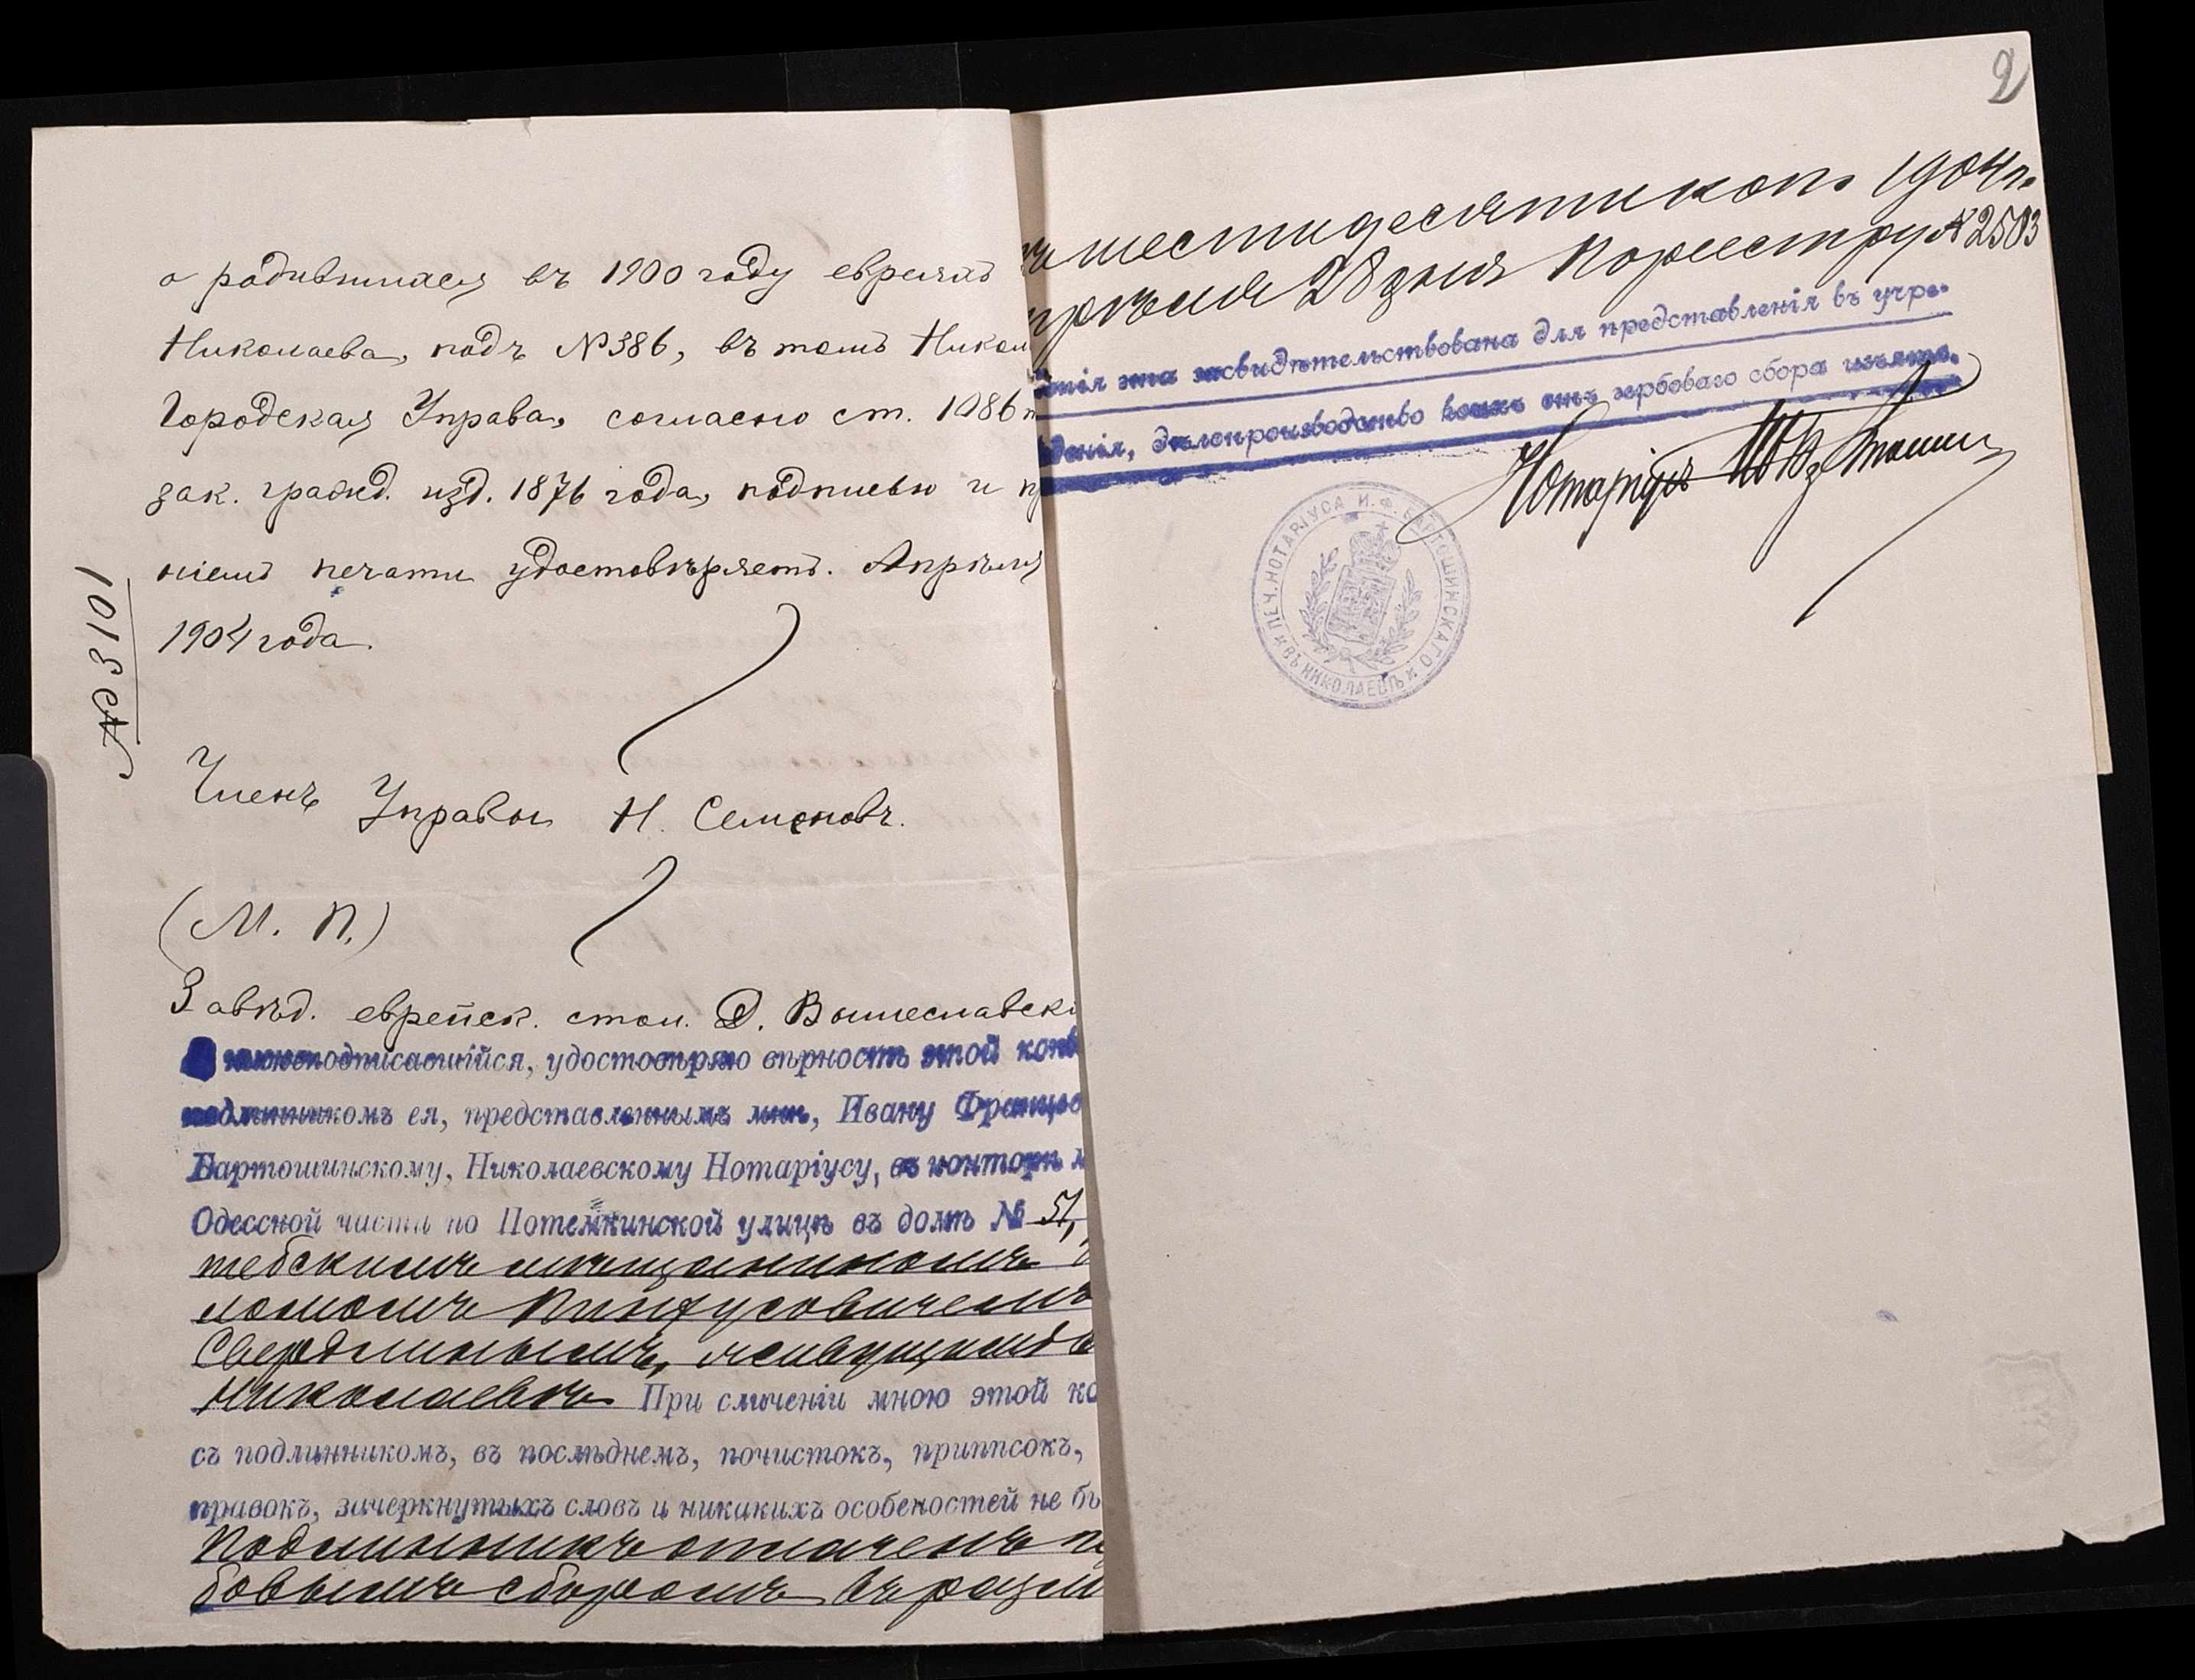 о родившихся въ 1900 году евреяхъ
Николаева, подъ №386, въ томъ Никол
Городская Управа, согласно ст. 1086 т
зак. гражд. изд. 1876 года, подписью и пр
ніемъ печати удостовѣряетъ. Апрѣля
1904 года.
№ 3101
Членъ Управы Н. Семеновъ.
(М. П.)
Завѣд. еврейск. стол. Д. Вышеславскі
нижеподписавшійся, удостовѣряю вѣрность этой копі
подлинникомъ ея, представленнымъ мнѣ, Ивану Францо
Бартошинскому, Николаевскому Нотаріусу, въ конторѣ м
Одесской части по Потемкинской улицѣ въ домѣ № 51,
тебскимъ мѣщаниномъ
ломомъ Пинхусовичемъ
Свердлинымъ, живущимъ в
Николаевѣ При сличеніи мною этой ко
съ подлинникомъ, въ послѣднемъ, почистокъ, приписокъ,
правокъ, зачеркнутыхъ словъ и никакихъ особеностей не бы
Подлинникъ оплаченъ г
бовымъ сборомъ въ разм
2
шестидесяти коп. 1904 г.
прѣля 28 дня По реестру № 2503
пія эта засвидѣтельствована для представленія въ учре-
денія, дѣлопроизводство коихъ отъ гербоваго сбора изъято.
Нотаріусъ
ПЕЧ. НОТАРІУСА И. Ф. БАРТОШИНСКАГО ВЪ НИКОЛАЕВѢ